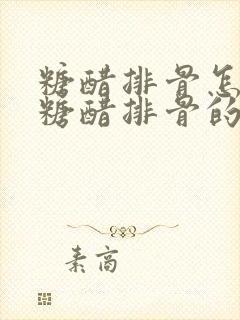 糖醋排骨怎
糖醋排骨的
素高